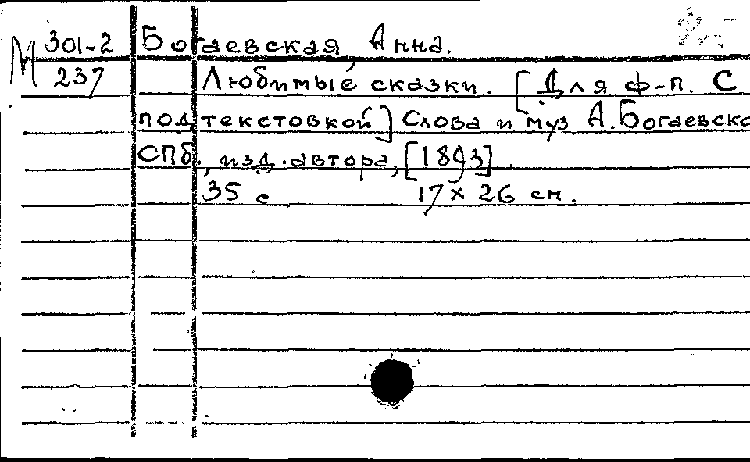 М 301-2 Богаевская, Анна.
237 Любимые сказки. [Для ф-п. С
подтекстовкой] Слова и муз А. Богаевско
СПб., изд. автора, [1893].
35 с 17 x 26 см.